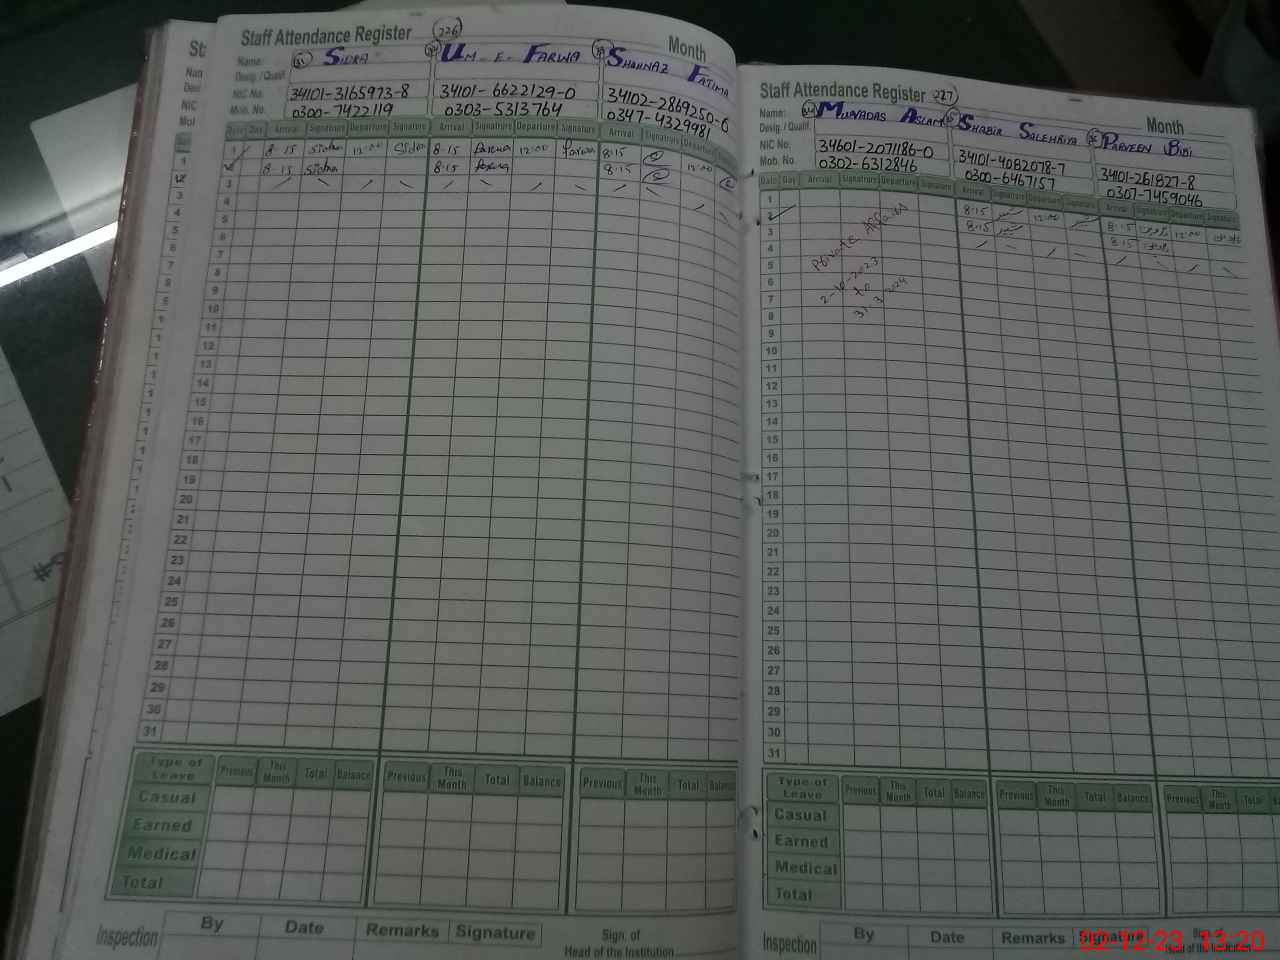 Staff Attendance Register 226
Month
Name: 41 SIDRA UM-E-FARWA SHAHNAZ FATIMA
Desig. / Qualif.
NIC No. 34101-3165973-8 34101-6622129-0 34102-2869250-6
Mob. No. 0300-7422119 0303-5313764 0347-4329981
Date Day Arrival Signature Departure Signature Arrival Signature Departure Signature Arrival Signature Departure
1 8.15 Sidra 12:00 Sidra 8.15 Farwa 12:00 Farwa 8.15 12:00
8.15 Sidra 8.15 Farwa 8.15
3
4
5
6
7
8
9
10
11
12
13
14
15
16
17
18
19
20
21
22
23
24
25
26
27
28
29
30
31
Type of Leave Previous This Month Total Balance Previous This Month Total Balance Previous This Month Total Balance
Casual
Earned
Medical
Total
Inspection By Date Remarks Signature Sign. of
Head of the Institution
Staff Attendance Register 227
Month
Name: ASLAM SHABIR PARVEEN BIBI
Desig. / Qualif.
NIC No. 34601-2071186-0 34101-4082078-7 34101-261827-8
Mob. No. 0302-6312846 0300-6467157 0307-7459046
Date Day Arrival Signature Departure Signature Arrival Signature Departure Signature Arrival Signature Departure Signature
1 8.15 12:00 8.15 12:00
2 8.15 8.15
3
4
5
6
7
8
9
10
11
12
13
14
15
16
17
18
19
20
21
22
23
24
25
26
27
28
29
30
31
Private Affairs
2-10-2023
to
31-3-2024
Type of Leave Previous This Month Total Balance Previous This Month Total Balance Previous This Month Total
Casual
Earned
Medical
Total
Inspection By Date Remarks Signature
Head of the Institution
02-12-23 13:20